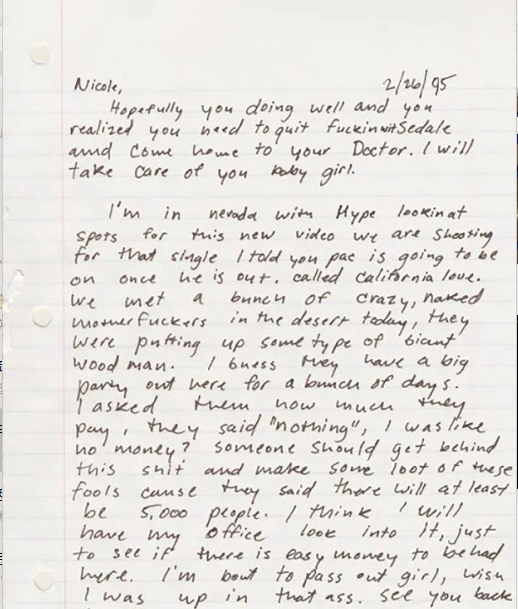 Nicole,                    2/26/95
Hopefully you doing well and you
realized you need to quit fuckinwitSedale
amd Come home to your Doctor. I will
take care of you baby girl.
I'm in nevada with Hype lookinat
spots for this new video we are shooting
for that single I told you pac is going to be
on once he is out. called California love.
We met a bunch of crazy, naked
motherfuckers in the desert today, they
were putting up some type of giant
wood man. I guess they have a big
party out here for a bunch of days.
I asked them how much they
pay, they said "nothing", I was like
no money? Someone should get behind
this shit and make some loot of these
fools cause they said there will at least
be 5,000 people. I think I will
have my office look into it, just
to see if there is easy money to behad
here. I'm bout to pass out girl, wish
I was up in that ass. See you back